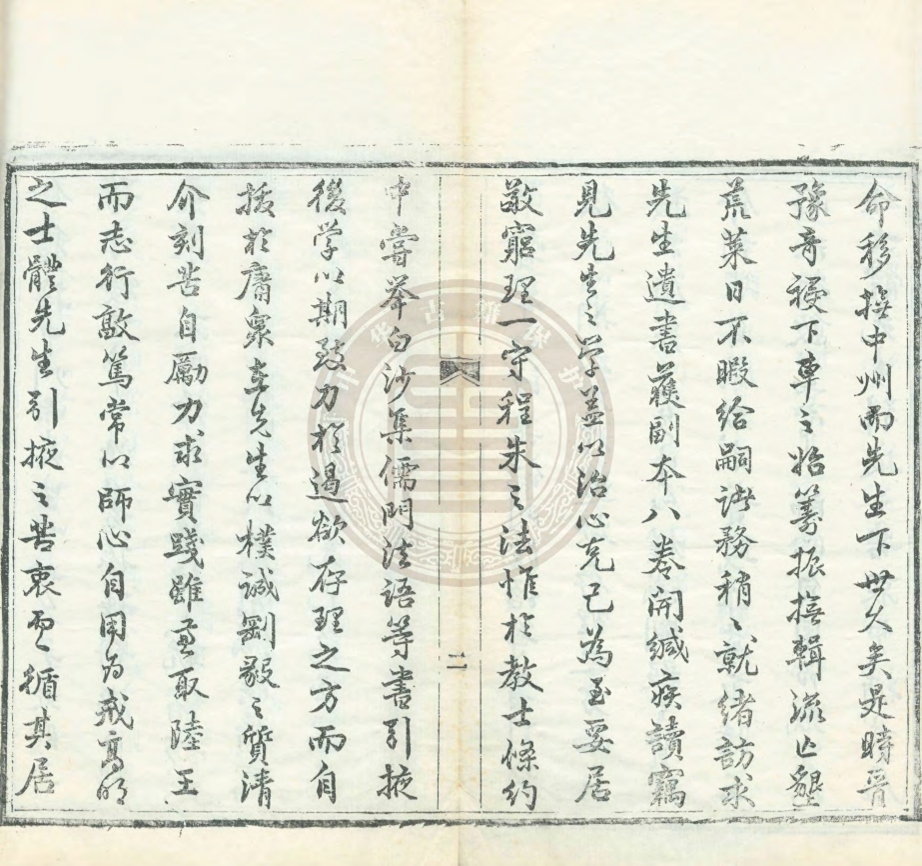 命移撫中州而先生下世久矣是時晉
豫奇祲下車之始籌振撫輯流亡墾
荒萊日不暇給嗣諸務稍〻就緒訪求
先生遺書獲副本八卷開緘疾讀竊
見先生之學蓋以治心克己為至要居
敬窮理一守程朱之法惟於教士條約
二
中嘗舉白沙集儒門法語等書引掖
後學以期致力於遏欲存理之方而自
拔於庸眾盖先生以樸誠剛毅之質清
介刻苦自勵力求實踐雖兼取陸王
而志行敦篤常以師心自用為戒高明
之士體先生引掖之苦衷而循其居